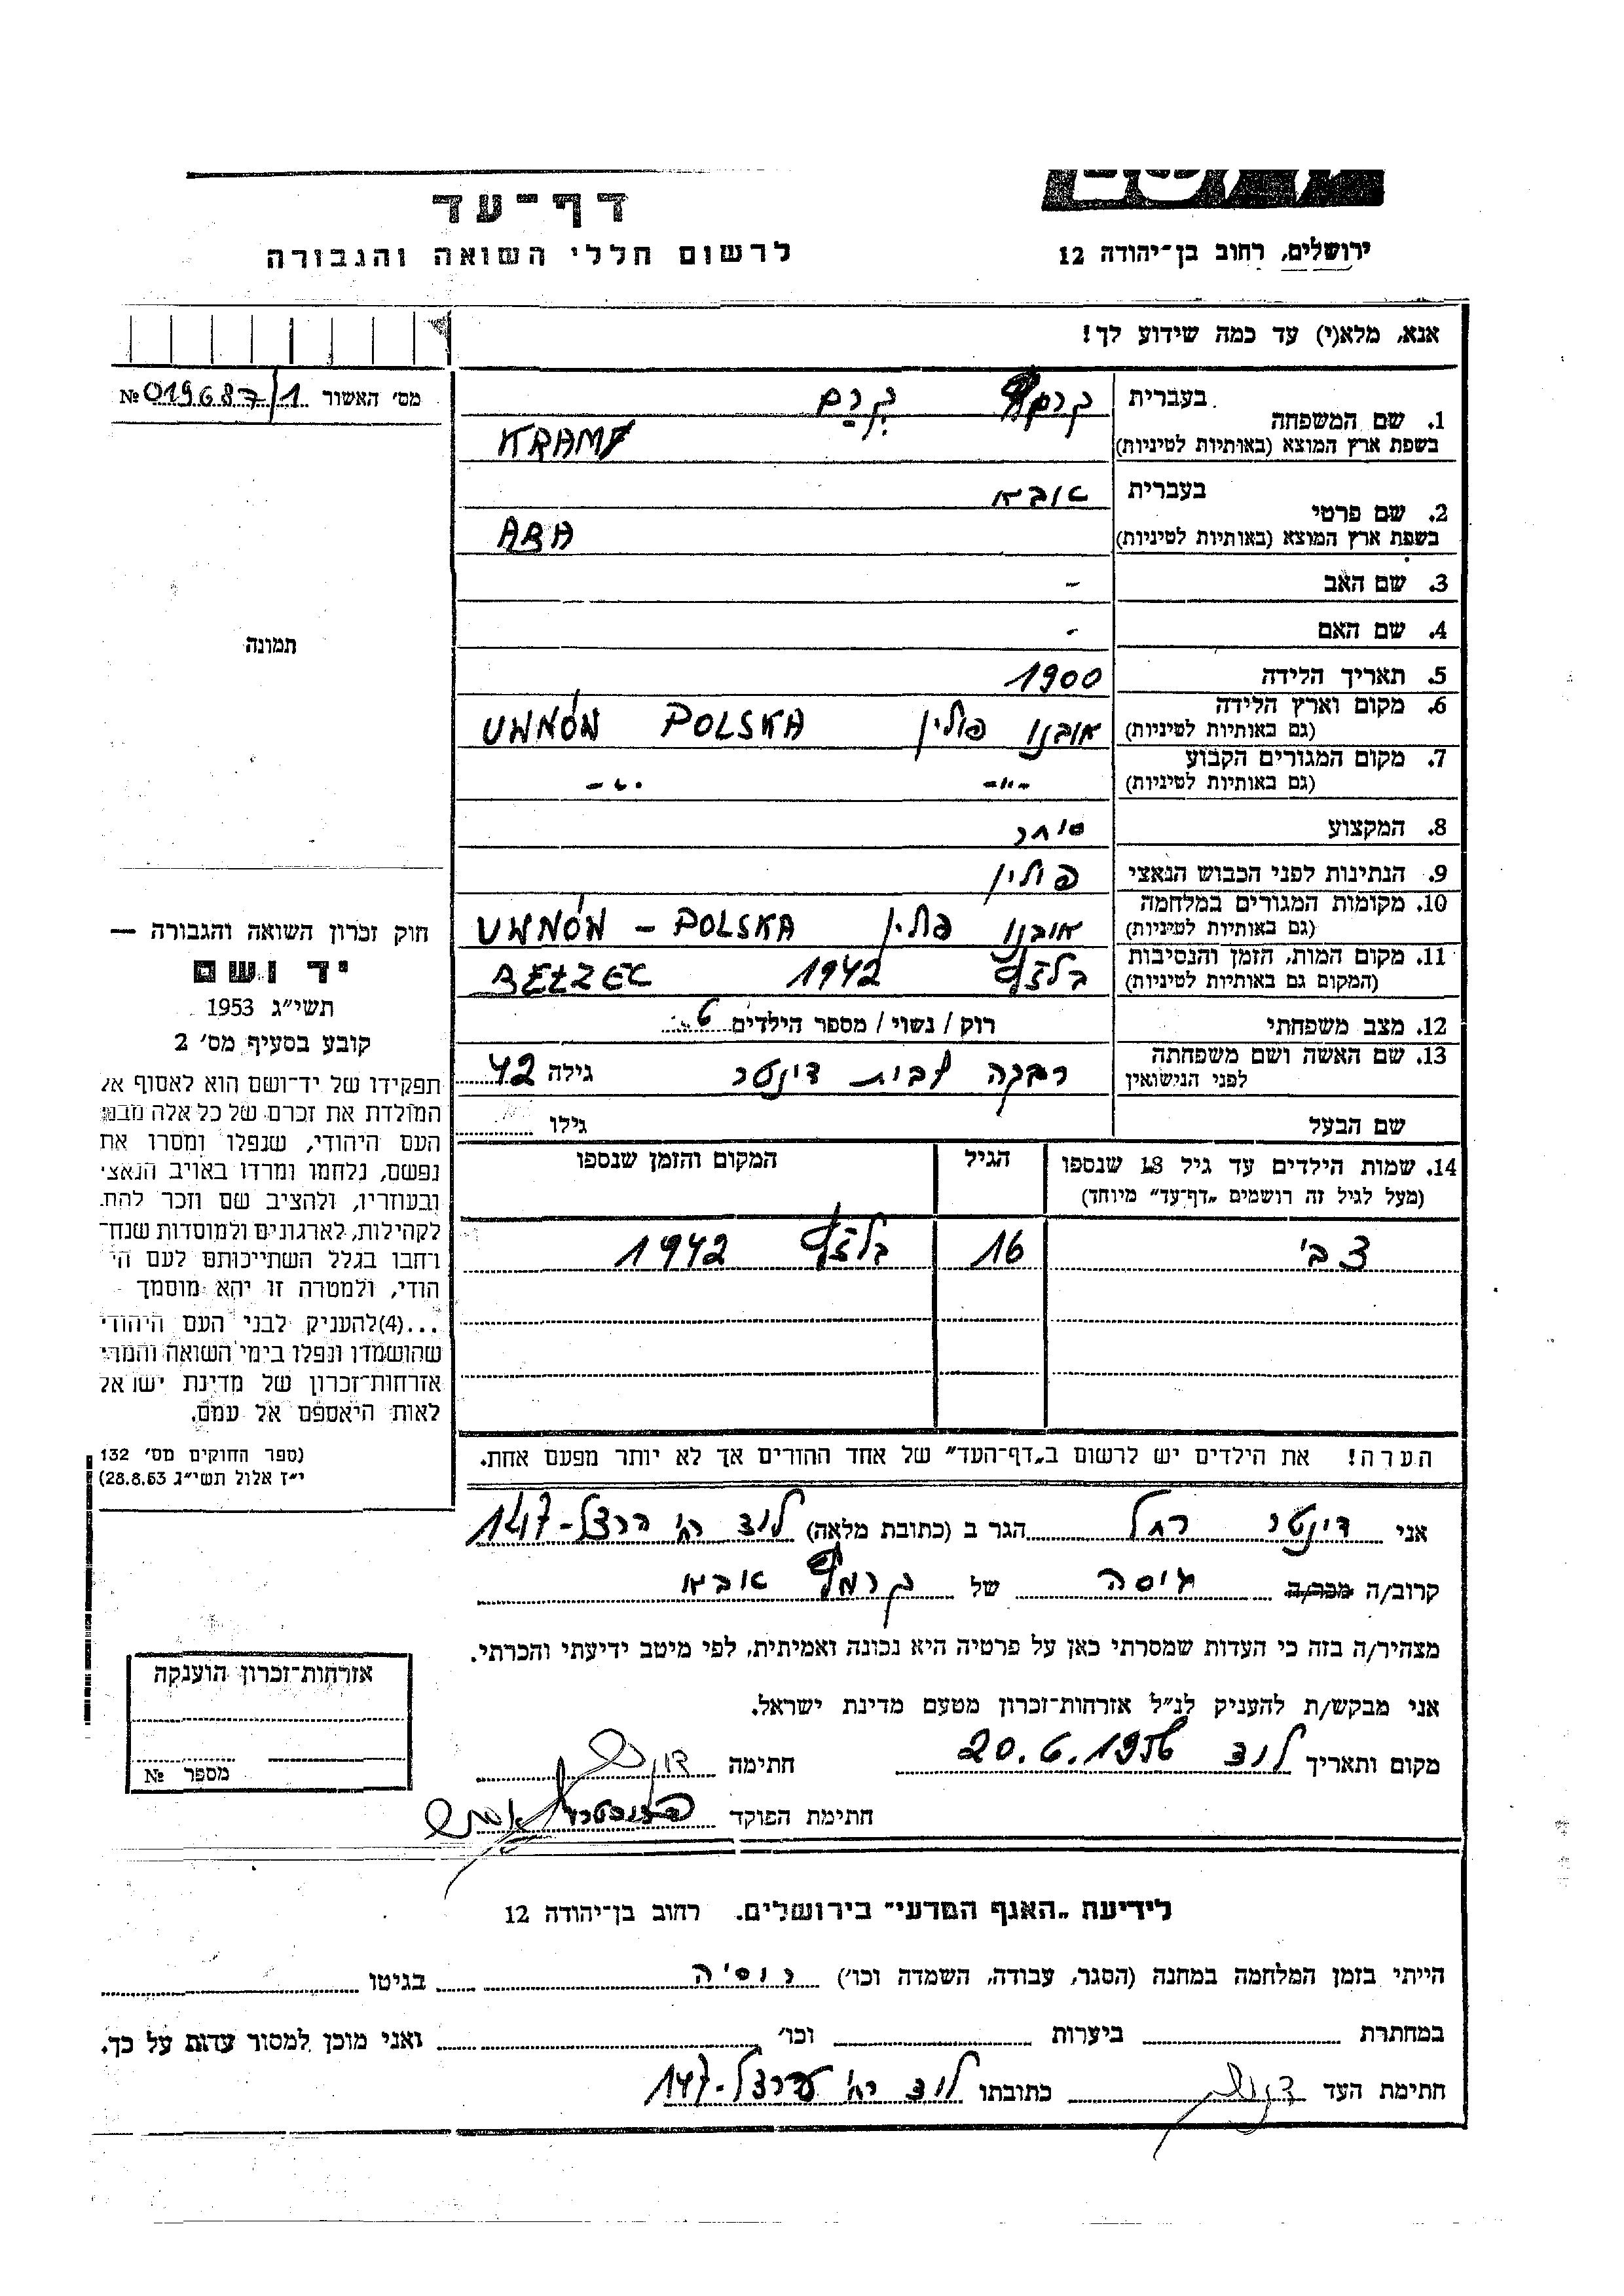 דף-עד
לרשום חללי השואה והגבורה
ירושלים, רחוב בן-יהודה 12
אנא, מלא(י) עד כמה שידוע לך!
מס' האשור № 019687/1
1. שם המשפחה
בעברית קרם
בשפת ארץ המוצא (באותיות לטיניות) KRAM
2. שם פרטי
בעברית אבא
בשפת ארץ המוצא (באותיות לטיניות) ABA
3. שם האב -
4. שם האם -
5. תאריך הלידה 1900
6. מקום וארץ הלידה
(גם באותיות לטיניות) אובנו פולין POLSKA UHNÓW
7. מקום המגורים הקבוע
(גם באותיות לטיניות) -"- -"-
8. המקצוע סוחר
9. הנתינות לפני הכבוש הנאצי פולין
10. מקומות המגורים במלחמה
(גם באותיות לטיניות) אובנו פולין UHNÓW - POLSKA
11. מקום המות, הזמן והנסיבות
(המקום גם באותיות לטיניות) בלזץ 1942 BEŁZEC
12. מצב משפחתי רוק / נשוי / מספר הילדים 6
13. שם האשה ושם משפחתה
לפני הנישואין רבקה לבית דינטר גילה 42
שם הבעל גילו
14. שמות הילדים עד גיל 18 שנספו הגיל המקום והזמן שנספו
(מעל לגיל זה רושמים „דף-עד" מיוחד)
צבי 16 בלזץ 1942
הערה! את הילדים יש לרשום ב„דף-העד" של אחד ההורים אך לא יותר מפעם אחת.
תמונה
חוק זכרון השואה והגבורה —
יד ושם
תשי"ג 1953
קובע בסעיף מס' 2
תפקידו של יד-ושם הוא לאסוף אל
המולדת את זכרם של כל אלה מבני
העם היהודי, שנפלו ומסרו את
נפשם, נלחמו ומרדו באויב הנאצי
ובעוזריו, ולהציב שם וזכר להם,
לקהילות, לארגונים ולמוסדות שנח-
רחבו בגלל השתייכותם לעם הי
הודי, ולמטרה זו יהא מוסמך
...(4)להעניק לבני העם היהודי
שהושמדו ונפלו בימי השואה והמרי
אזרחות-זכרון של מדינת ישראל
לאות היאספם אל עמם.
(ספר החוקים מס' 132
י"ז אלול תשי"ג 28.8.53)
אני דינטר רחל הגר ב (כתובת מלאה) לוד רח' הרצל-147
קרוב/ה מכר/ה גיסה של קרמ אבא
מצהיר/ה בזה כי העדות שמסרתי כאן על פרטיה היא נכונה ואמיתית, לפי מיטב ידיעתי והכרתי.
אני מבקש/ת להעניק לנ"ל אזרחות-זכרון מטעם מדינת ישראל.
מקום ותאריך לוד 20.6.1956 חתימה
חתימת הפוקד
אזרחות-זכרון הוענקה
מספר №
לידיעת „האגף המדעי" בירושלים. רחוב בן-יהודה 12
הייתי בזמן המלחמה במחנה (הסגר, עבודה, השמדה וכו') רוסיה בגיטו
במחתרת ביערות וכו' ואני מוכן למסור עדות על כך.
חתימת העד כתובתו לוד רח' הרצל-147